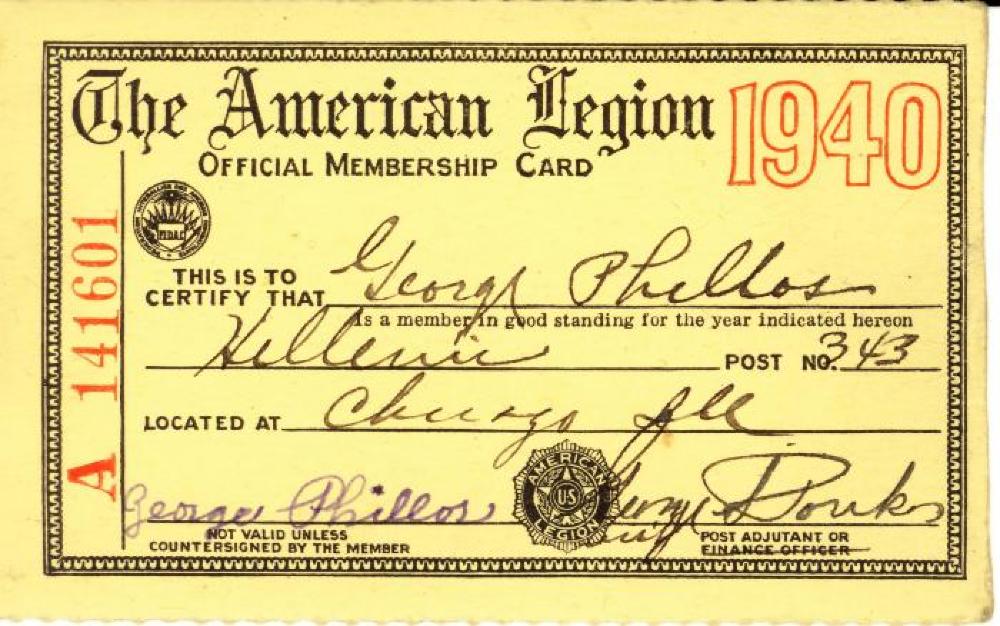 The American Legion 1940
OFFICIAL MEMBERSHIP CARD
A 141601
F.I.D.A.C.
THIS IS TO
CERTIFY THAT George Phillos
Is a member in good standing for the year indicated hereon
Hellenic POST NO. 343
LOCATED AT Chicago Ill
George Phillos
AMERICAN
U.S
LEGION
NOT VALID UNLESS
COUNTERSIGNED BY THE MEMBER
POST ADJUTANT OR
FINANCE OFFICER